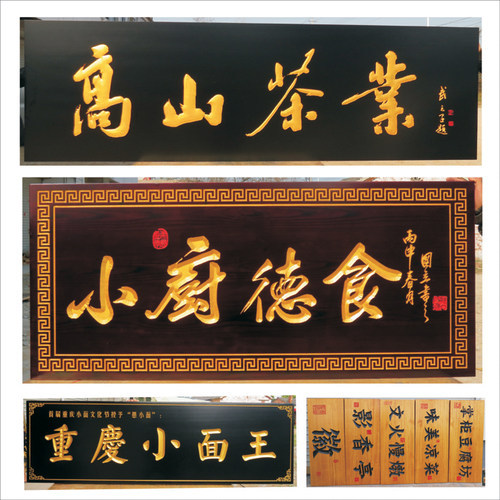 高山茶業
小廚德食
丙申春月
首届重庆小面文化节授予
重慶小面王
掌柜豆腐坊
味美凉菜
文火慢燉
影香亭
徽